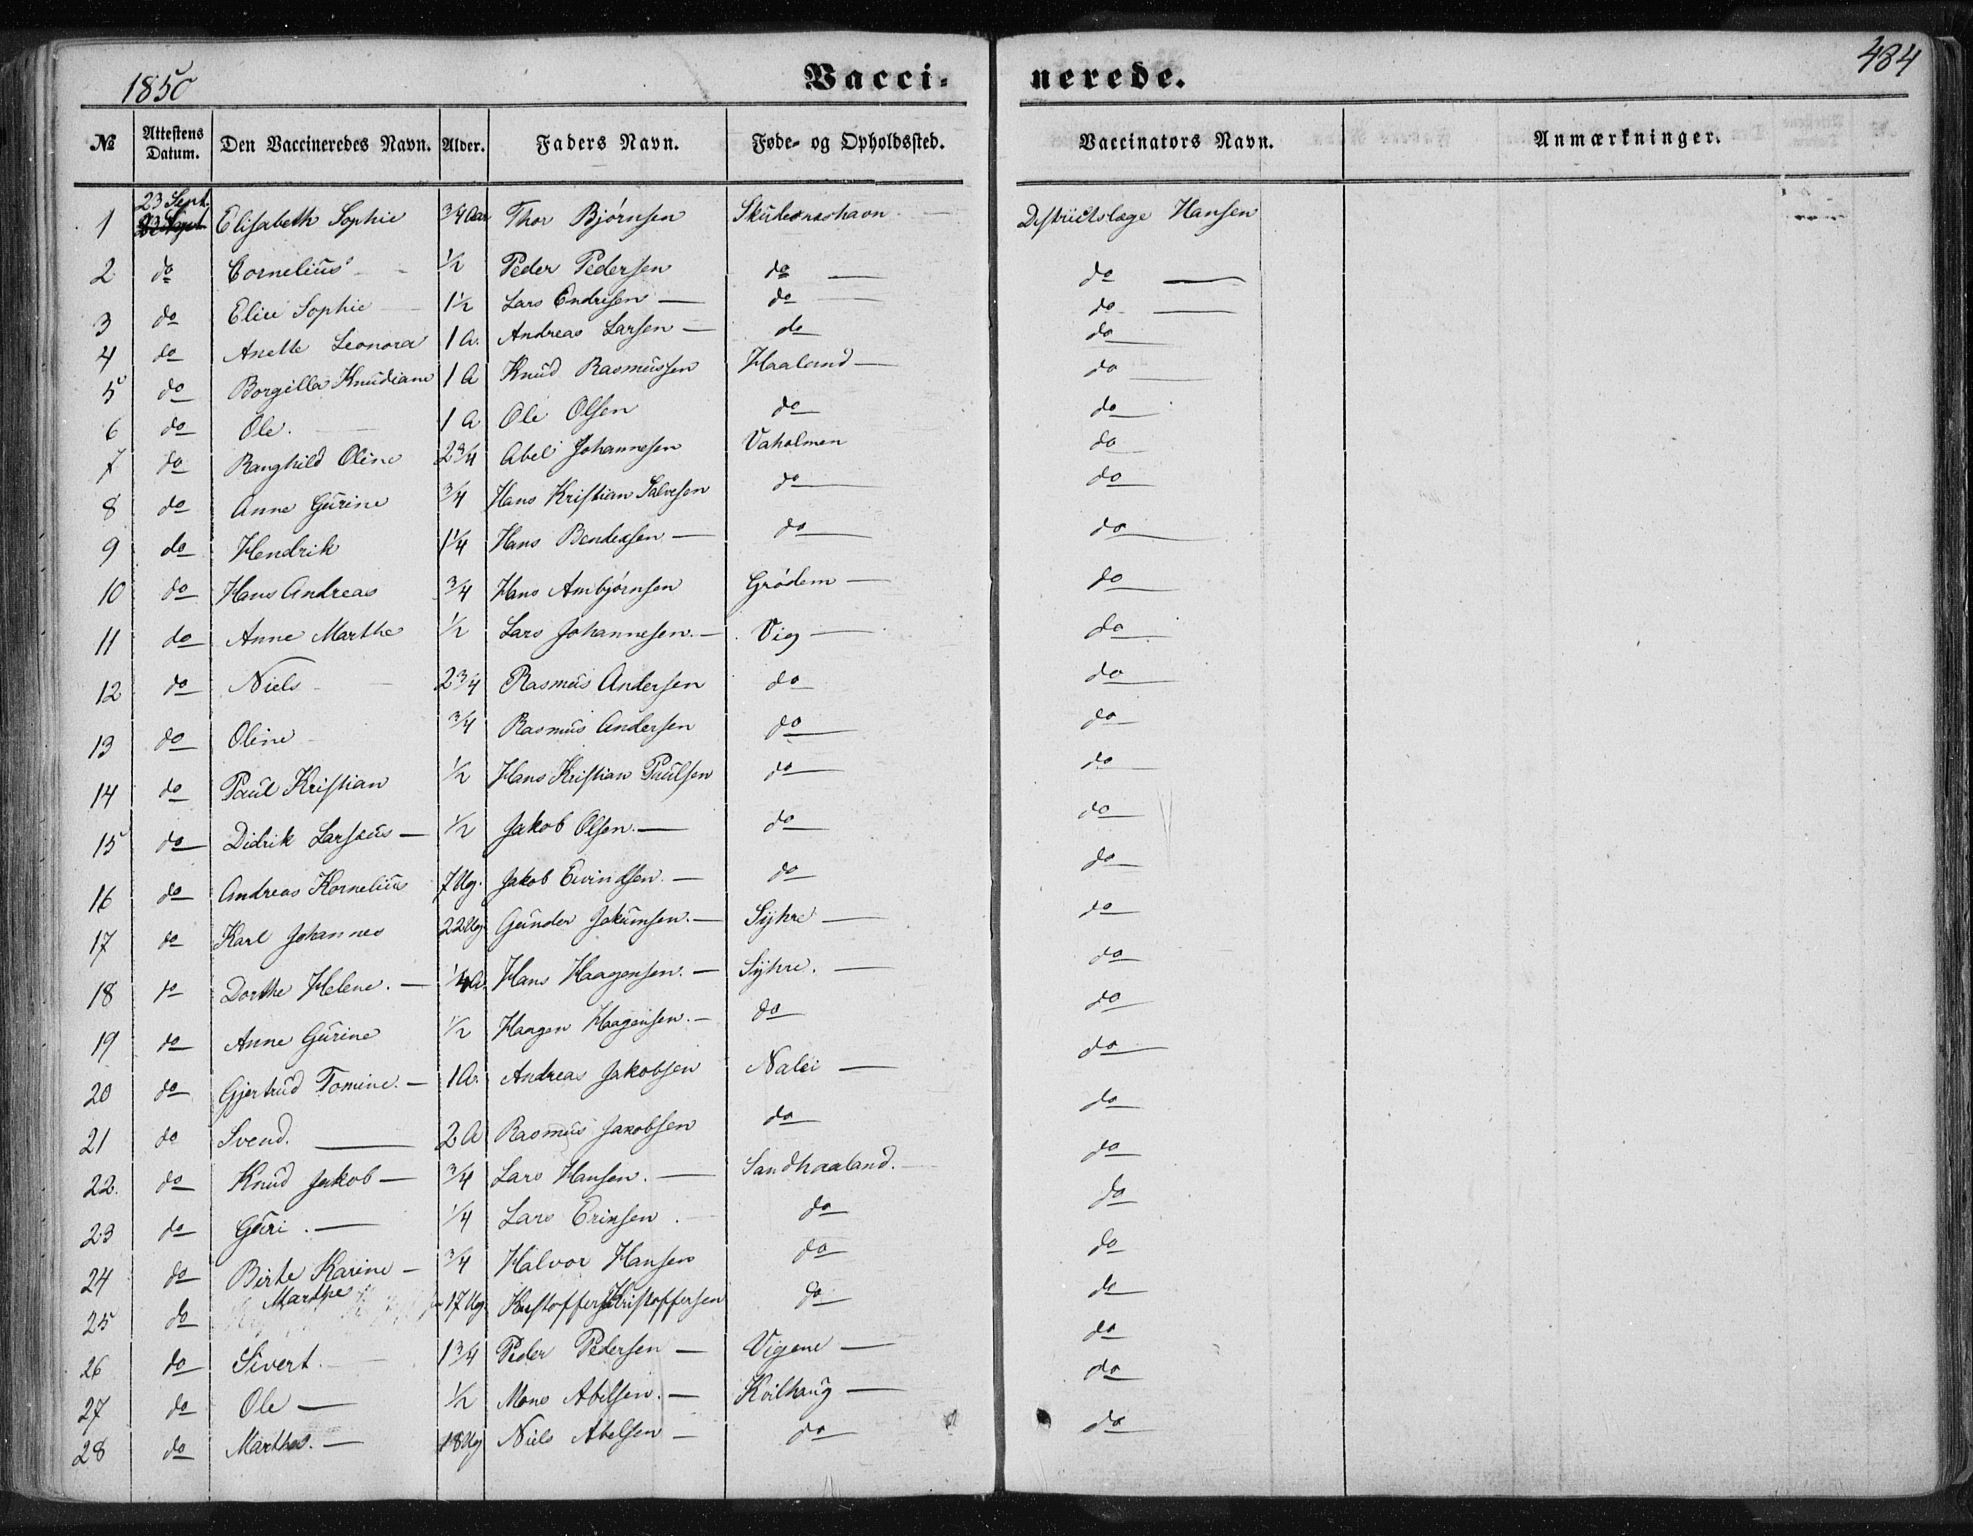 1850 Vacci- nerede. 484
№ Attestens Datum. Den Vaccineredes Navn. Alder. Faders Navn. Føde- og Opholdssted. Vaccinators Navn. Anmærkninger.
23 Sept.
1 Elisabeth Sophie 3/4 Aar Thor Bjørnsen Distrietslæge Hansen
2 do Cornelius 1/2 Peder Pedersen do do
3 do Elise Sophie 1 1/2 Lars Endresen do do
4 do Anette Leonora 1 A. Andreas Larsen do do
5 do Borgilla Knudiane 1 A Knud Rasmussen Haaland do
6 do Ole. 1 A Ole Olsen do do
7 do Ranghild Oline 2 3/4 Abel Johannesen Vaholmen do
8 do Anne Gurine 3/4 Hans Kristian Salvesen do do
9 do Hendrik 1 1/4 Hans Bendexsen do do
10 do Hans Andreas 3/4 Hans Ambjørnsen Grødem do
11 do Anne Marthe 1/2 Lars Johannesen. Vig do
12 do Niels 2 3/4 Rasmus Andersen do do
13 do Oline 3/4 Rasmus Andersen do do
14 do Paul Kristian 1/2 Hans Kristian Paulsen do do
15 do Didrik 1/2 Jakob Olsen. do do
16 do Andreas Kornelius 7 Ug. Jakob Eivindsen. do do
17 do Karl Johannes 22 Ug Gunder Jakumsen. Syhre do
18 do Dorthe Helene. 1/4 A. Hans Haagensen. Syhre. do
19 do Anne Gurine 1/2 Haagen Haagensen. do do
20 do Gjertrud Tomine. 1 A. Andreas Jakobsen Nalei do
21 do Svend. 2 A Rasmus Jakobsen do do
22. do Knud Jakob 3/4 Lars Hansen. Sandhaaland. do
23 do Guri. 1/4 Lars do do
24 do Birte Karine 3/4 Halvor Hansen do do
25 do Marthe 17 Ug Kristoffer Kristoffersen do do
26 do Sivert. 1 3/4 Peder Pedersen Vigene do
27 do Ole 1/2 Mons Abelsen. Kvilhaug do
28 do Marthe. 18 Ug Niels Abelsen do do